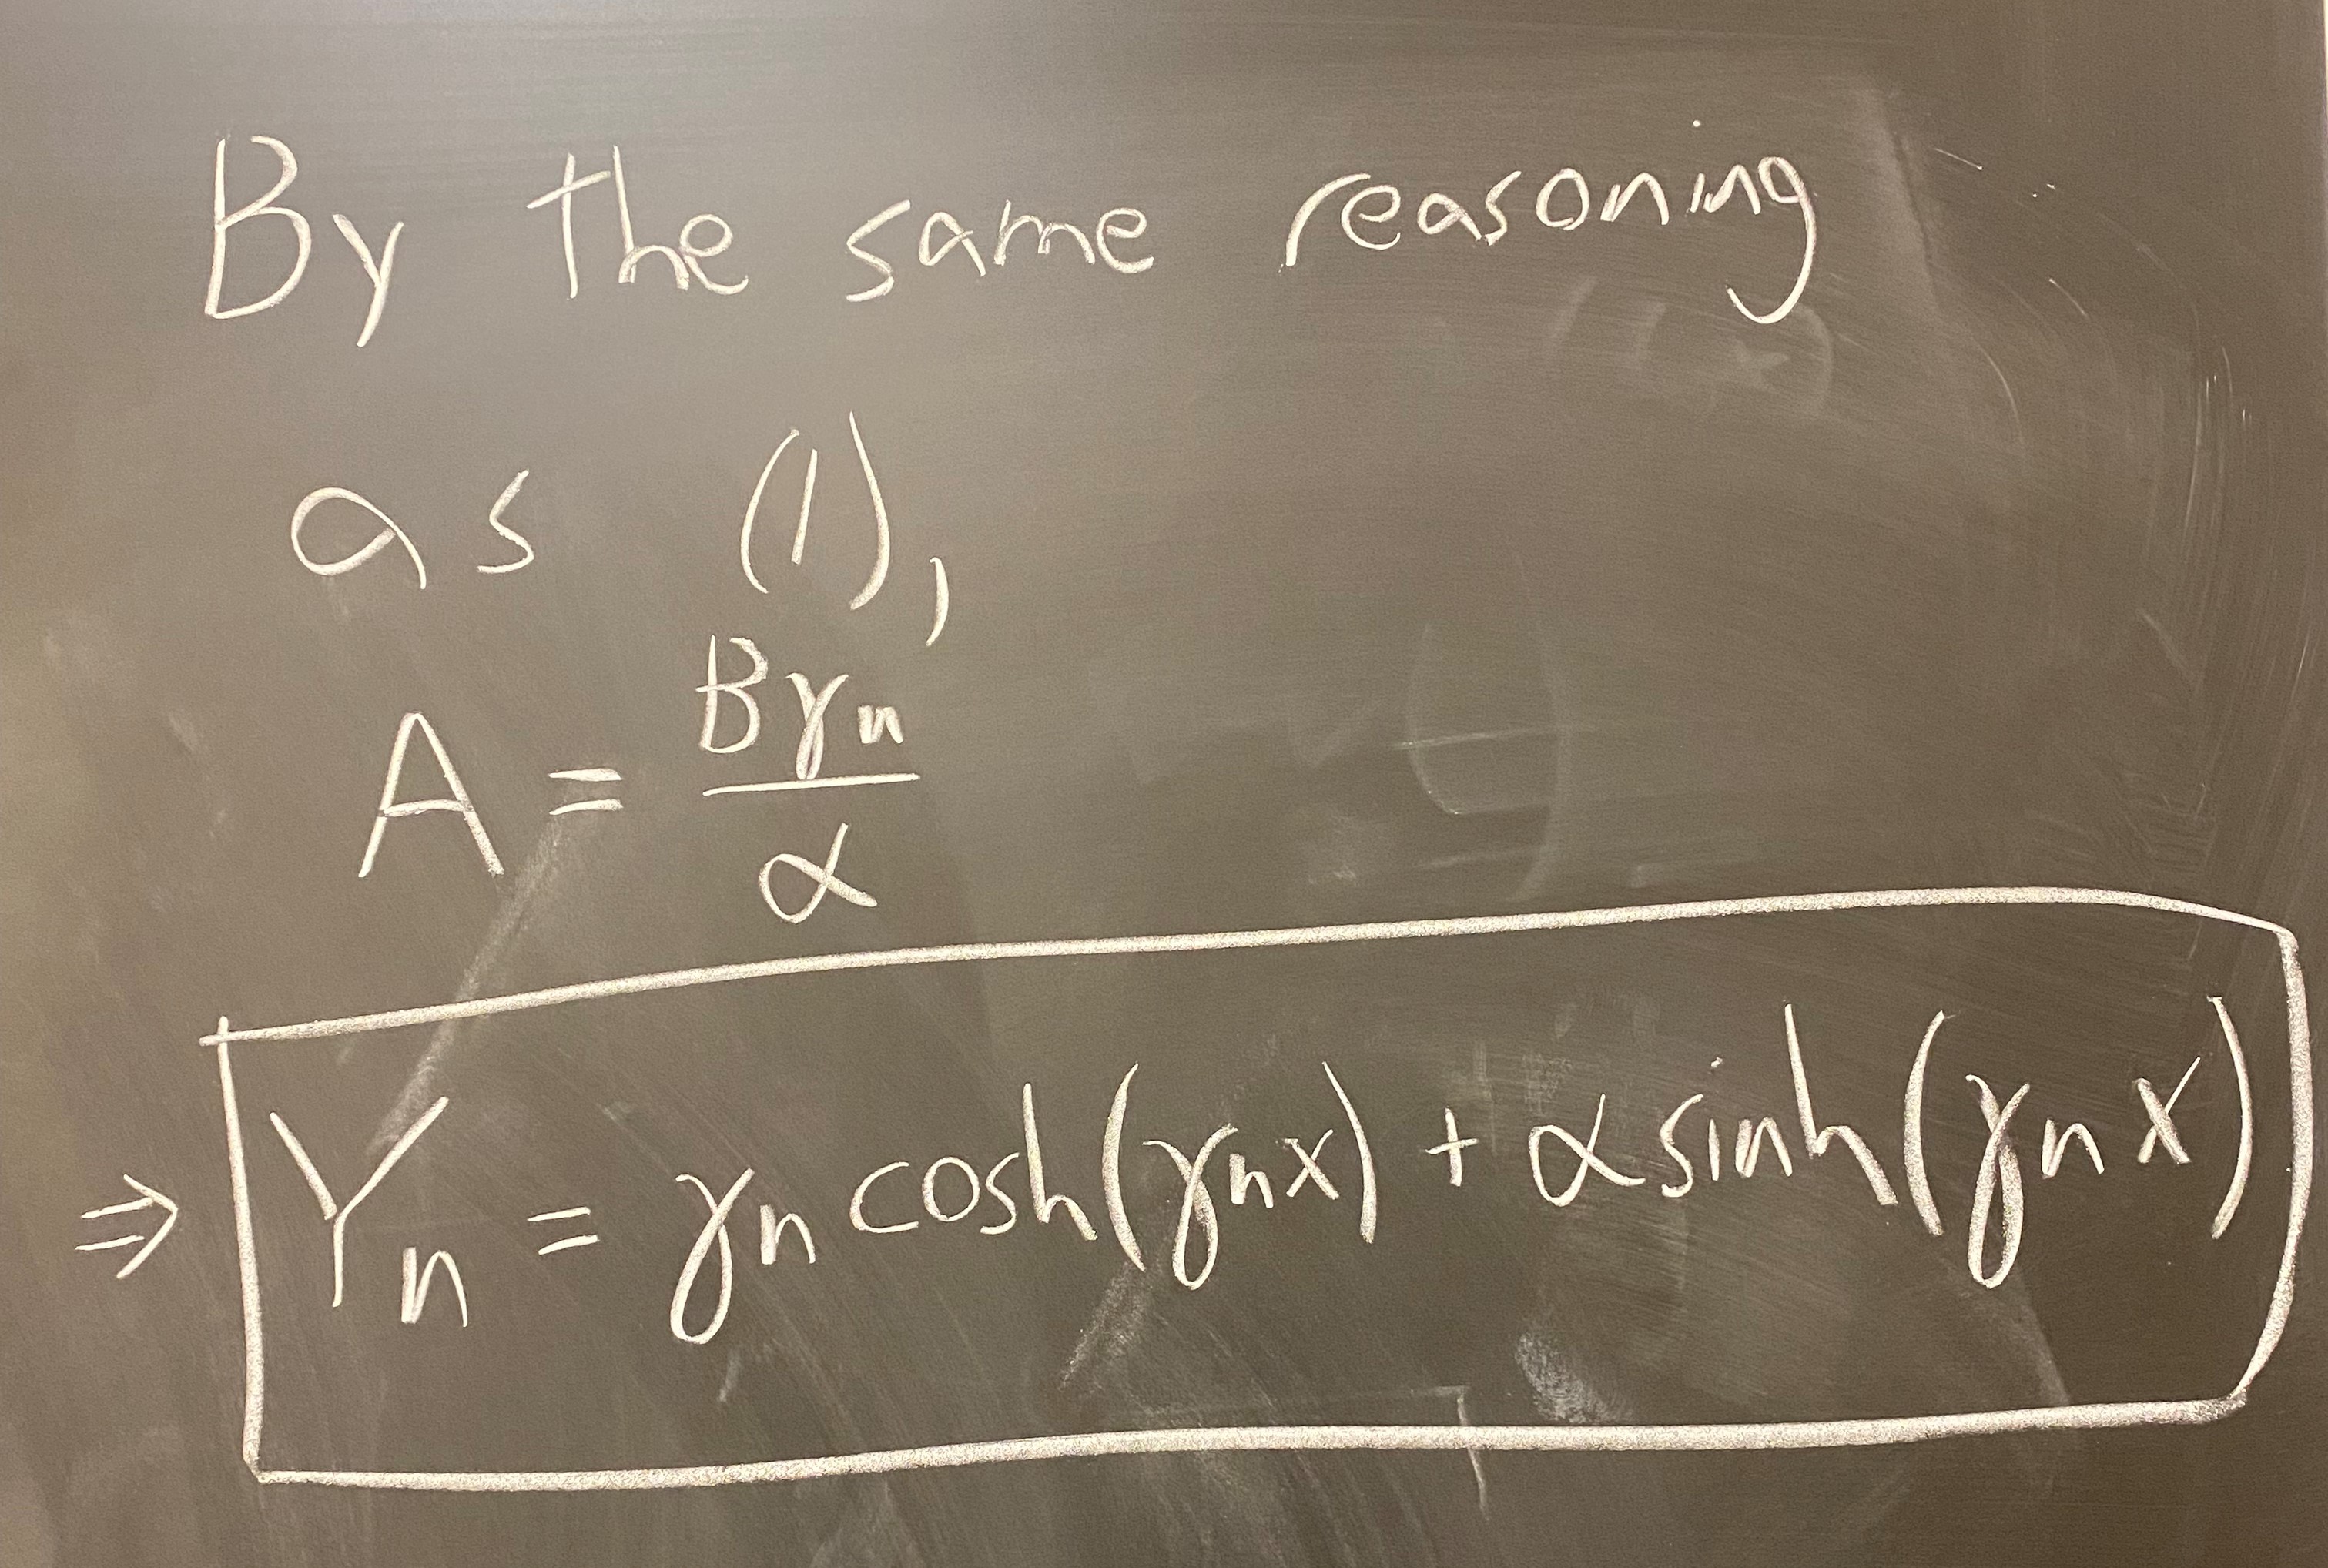 By the same reasoning
as (1),
A = Bγn / α
⇒ Yn = γn cosh(γnx) + α sinh(γn x)